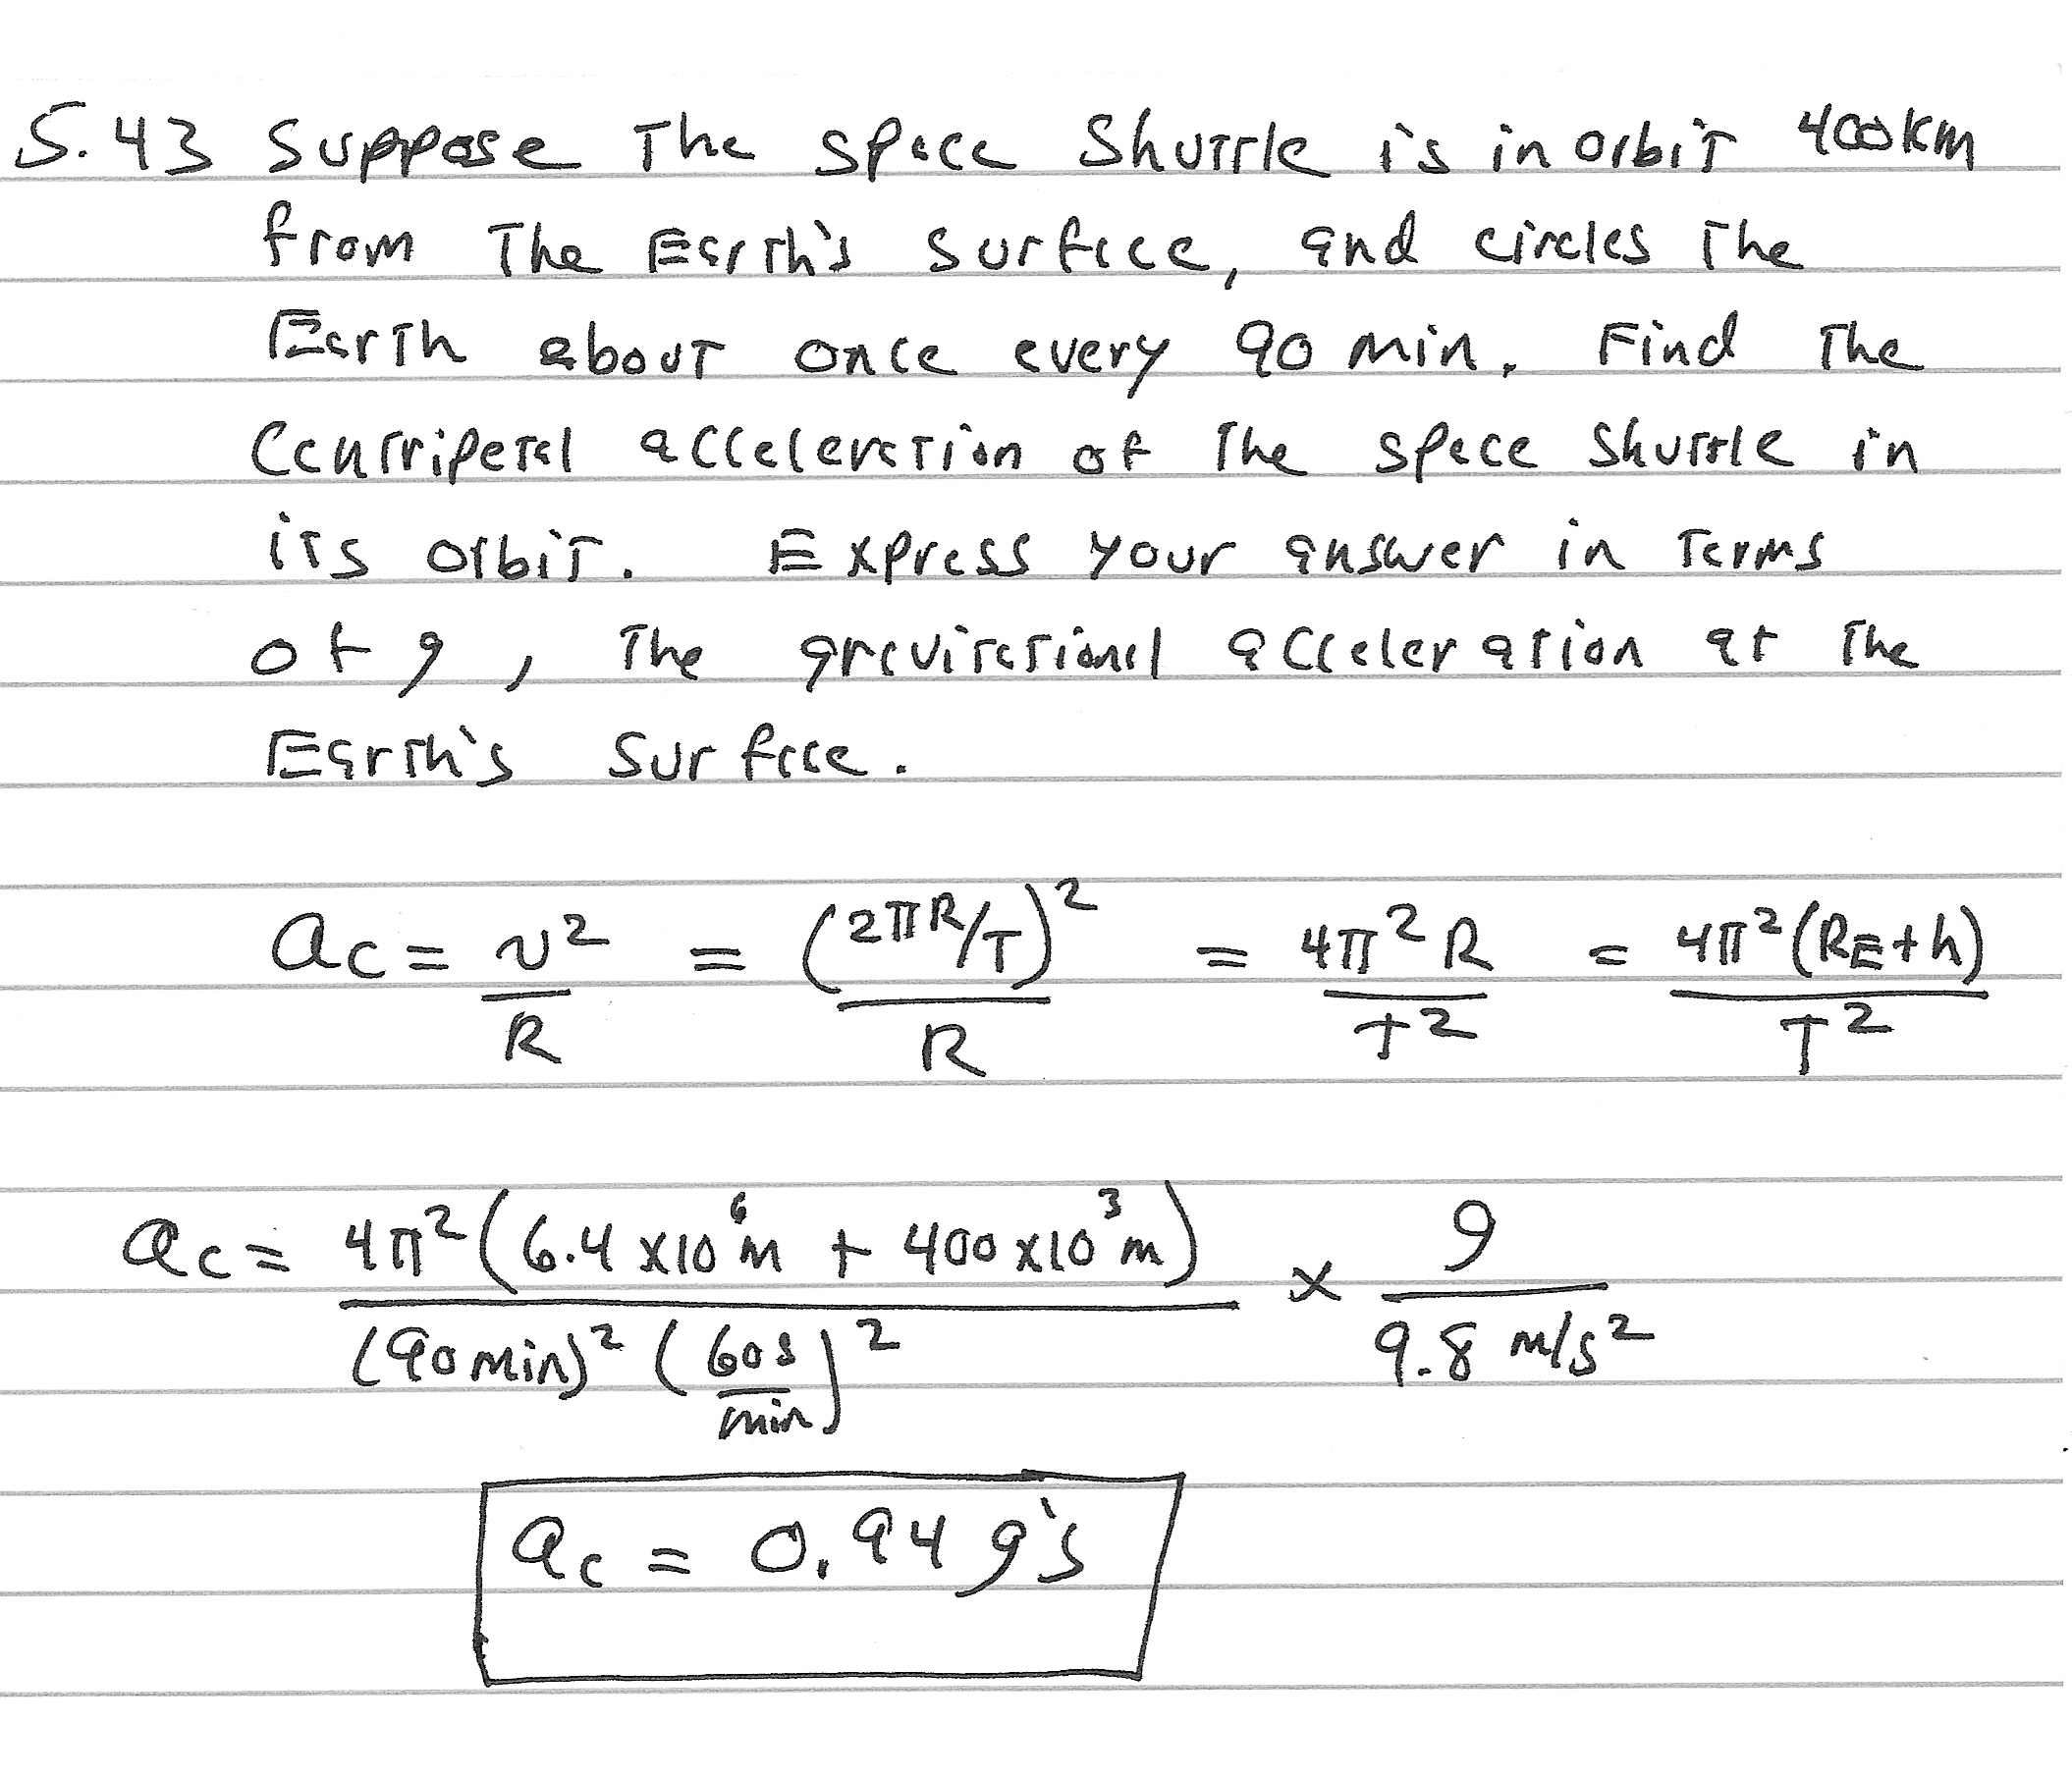 5.43 Suppose The space Shuttle is in orbit 400km
from The Earth's surface, and circles The
Earth about once every 90 min. Find The
Centripetal acceleration of The space Shuttle in
its orbit. Express your answer in Terms
of g, The gravitational acceleration at The
Earth's Surface.
ac = v²/R = (2πR/T)²/R = 4π²R/T² = 4π²(RE+h)/T²
ac = 4π²(6.4 x10⁶m + 400 x10³m)/(90min)²(60s/min)² x g/9.8 m/s²
ac = 0.94 g's